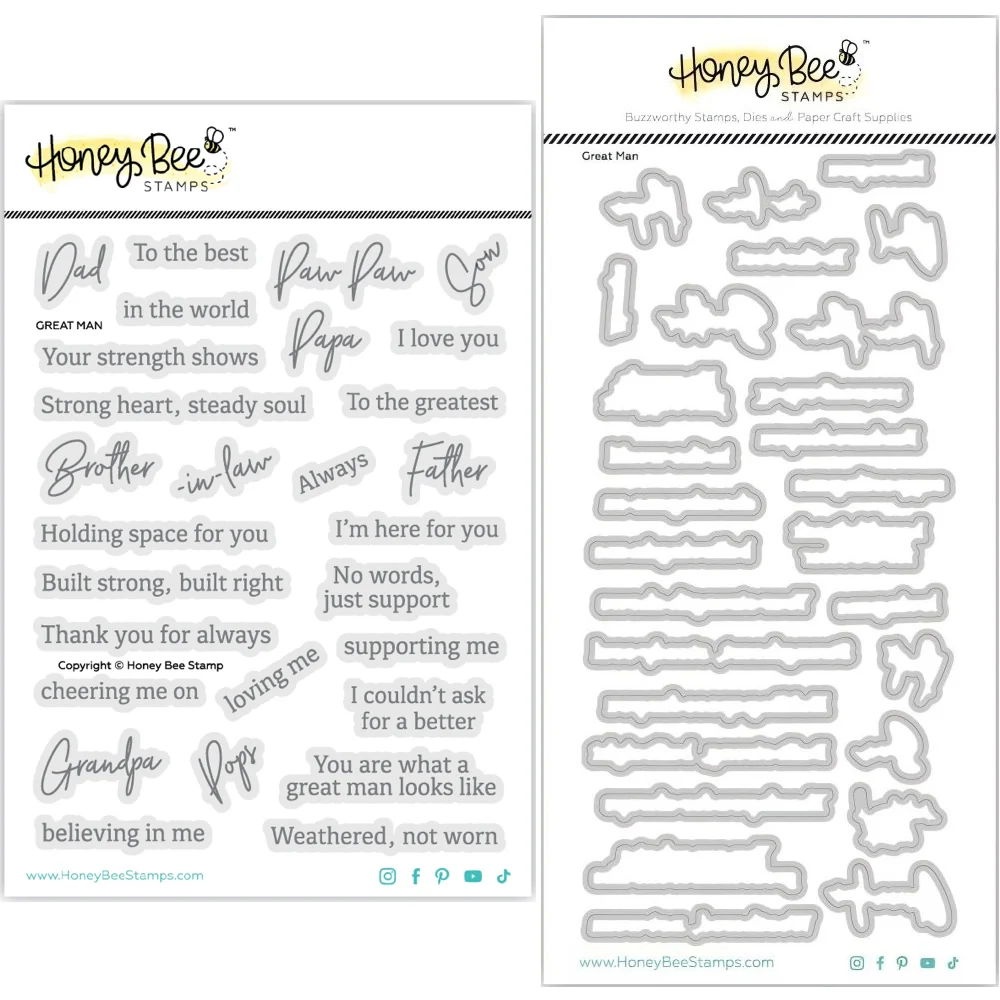 Honey Bee
STAMPS
™
Dad
To the best
Paw Paw
Son
in the world
GREAT MAN
Papa
I love you
Your strength shows
Strong heart, steady soul
To the greatest
Brother
-in-law
Always
Father
Holding space for you
I'm here for you
Built strong, built right
No words,
just support
Thank you for always
supporting me
Copyright © Honey Bee Stamp
cheering me on
loving me
I couldn't ask
for a better
Grandpa
Pops
You are what a
great man looks like
believing in me
Weathered, not worn
www.HoneyBeeStamps.com
Honey Bee
STAMPS
™
Buzzworthy Stamps, Dies and Paper Craft Supplies
Great Man
www.HoneyBeeStamps.com